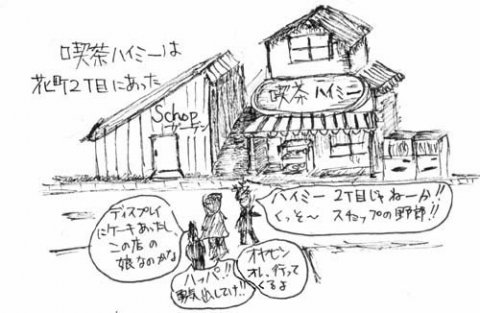 喫茶ハイミーは
花町2丁目にあった
Schop
ガーデン
喫茶 ハイミー
ハイミー 2丁目じゃねーか!!
くっそ〜 スチョップの野郎!!
ディスプレイ
にケーキあったし、
この店の
娘なのかな
ハッパ!!
勇気出してけ!!
オヤビン
オレ、行って
くるよ